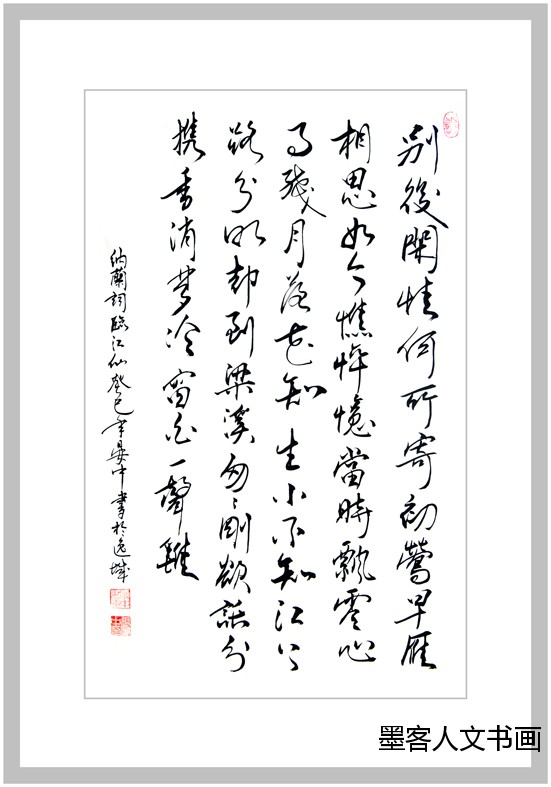 别後閑情何所寄初鶯早雁
相思如今憔悴憶當時飄零心
事殘月落花知生小不知江上
路分明却到梁溪匆〻剛欲話分
携香消夢冷窗白一聲雞
納蘭詞臨江仙癸巳年晏中書於逸城
墨客人文书画